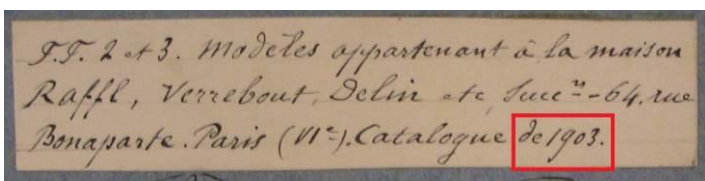 F.F. 2 et 3. Modèles appartenant à la maison
Raffl, Verrebout, Delin etc, Succrs - 64, rue
Bonaparte. Paris (VIe). Catalogue de 1903.